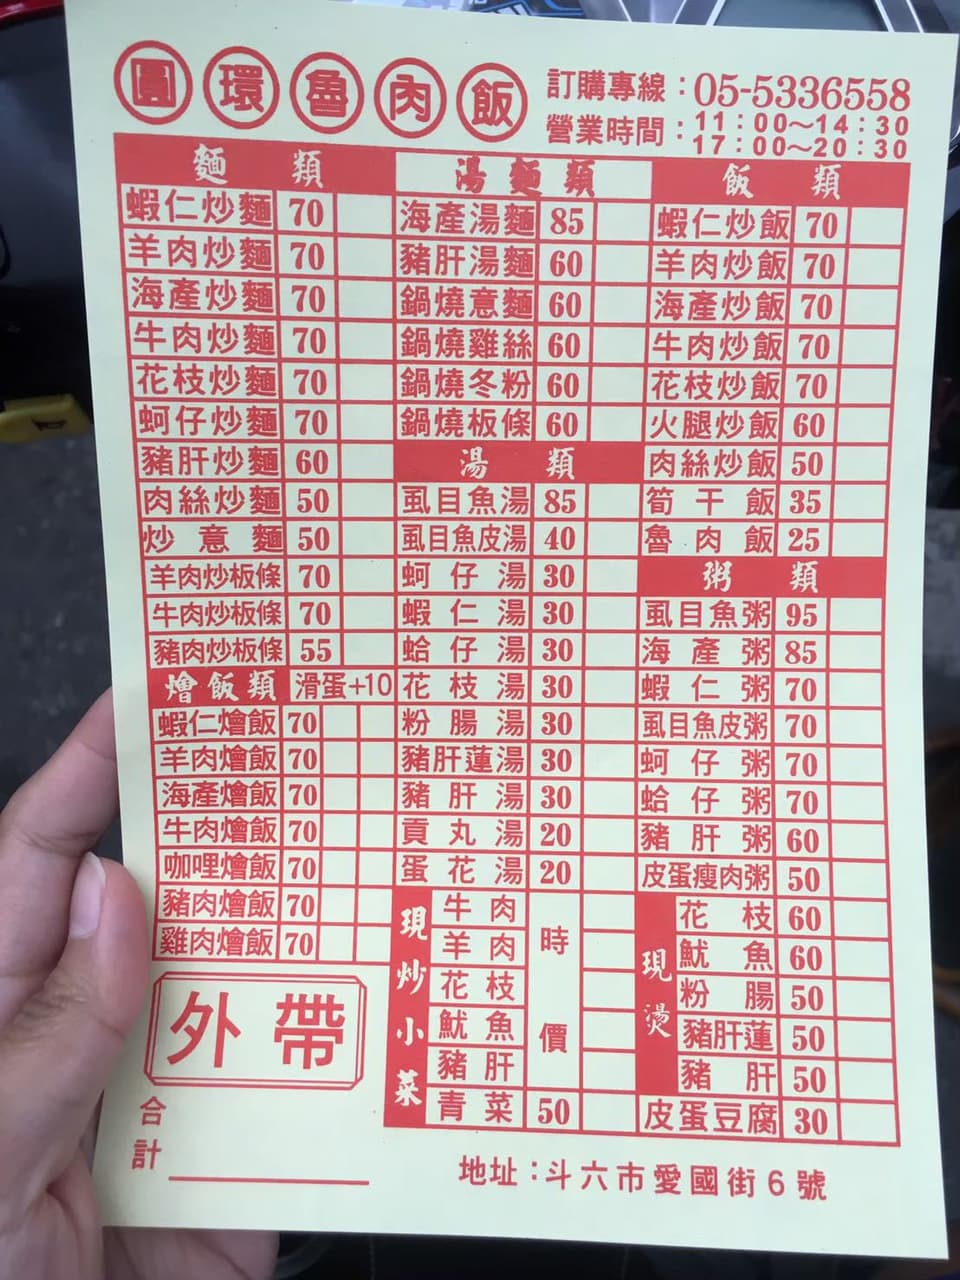 圓環魯肉飯
訂購專線：05-5336558
營業時間：11：00～14：30
17：00～20：30
麵類
蝦仁炒麵 70
羊肉炒麵 70
海產炒麵 70
牛肉炒麵 70
花枝炒麵 70
蚵仔炒麵 70
豬肝炒麵 60
肉絲炒麵 50
炒意麵 50
羊肉炒板條 70
牛肉炒板條 70
豬肉炒板條 55
燴飯類 滑蛋+10
蝦仁燴飯 70
羊肉燴飯 70
海產燴飯 70
牛肉燴飯 70
咖哩燴飯 70
豬肉燴飯 70
雞肉燴飯 70
外帶
合計
湯麵類
海產湯麵 85
豬肝湯麵 60
鍋燒意麵 60
鍋燒雞絲 60
鍋燒冬粉 60
鍋燒板條 60
湯類
虱目魚湯 85
虱目魚皮湯 40
蚵仔湯 30
蝦仁湯 30
蛤仔湯 30
花枝湯 30
粉腸湯 30
豬肝蓮湯 30
豬肝湯 30
貢丸湯 20
蛋花湯 20
現炒小菜
牛肉
羊肉
花枝
魷魚
豬肝
時價
青菜 50
飯類
蝦仁炒飯 70
羊肉炒飯 70
海產炒飯 70
牛肉炒飯 70
花枝炒飯 70
火腿炒飯 60
肉絲炒飯 50
筍干飯 35
魯肉飯 25
粥類
虱目魚粥 95
海產粥 85
蝦仁粥 70
虱目魚皮粥 70
蚵仔粥 70
蛤仔粥 70
豬肝粥 60
皮蛋瘦肉粥 50
現燙
花枝 60
魷魚 60
粉腸 50
豬肝蓮 50
豬肝 50
皮蛋豆腐 30
地址：斗六市愛國街6號